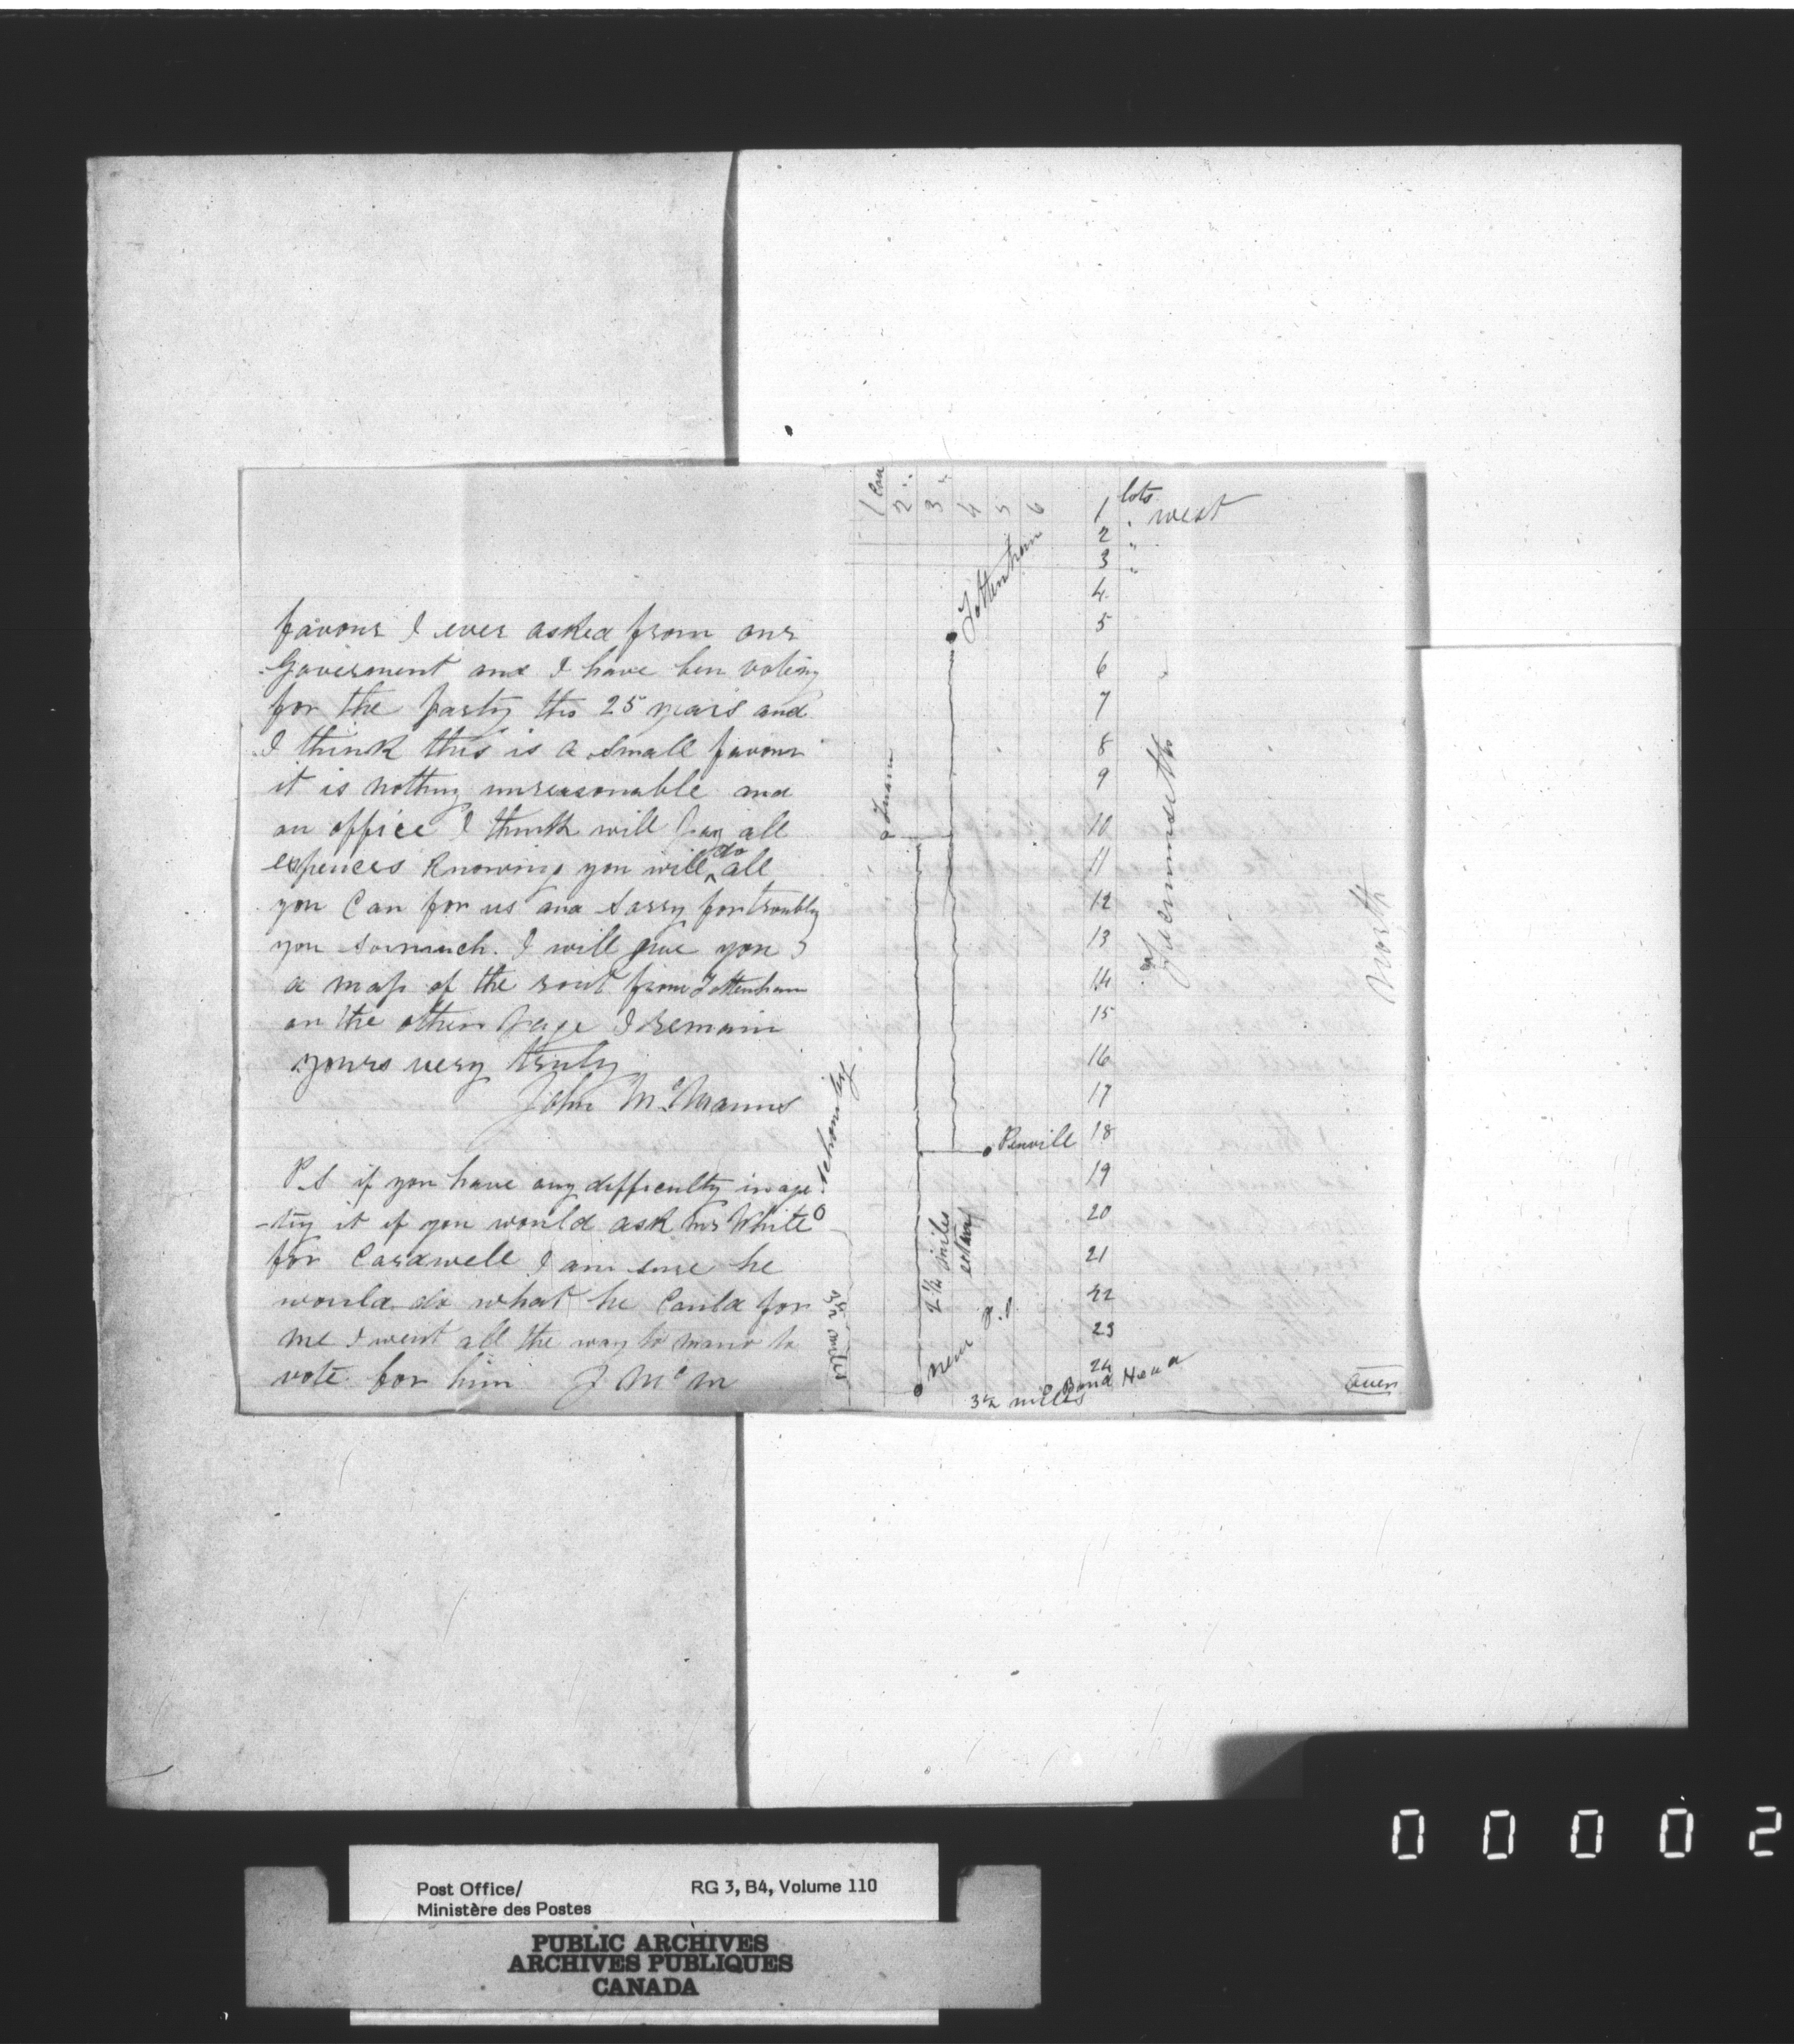 favour I ever asked from our
Goverment and I have ben voting
for the party this 25 years and
I think this is a small favour
it is nothing unreasonable and
an office I think will pay all
expences Knowing you will do all
you Can for us and sorry for troubly
you so much. I will give you
a map of the rout from Tottenham
on the other page I remain
yours very truly
John McManus
P.S if you have any difficulty in age
-ting it if you would ask mr White
for Cardwell I am sure he
would do what he Could for
me I went all the way to mano to
vote for him J McM
1 Con
2 "
3 "
4
5
6
lots
west
1
2 "
3 "
4
5
6
7
8
9
10
11
12
13
14
15
16
17
18
19
20
21
22
23
24
Tottenham
Penvill
2 1/2 miles
new P.O
3 1/2 miles
Bond Head
3 1/2 miles
North
over
00002
Post Office/
Ministère des Postes
RG 3, B4, Volume 110
PUBLIC ARCHIVES
ARCHIVES PUBLIQUES
CANADA